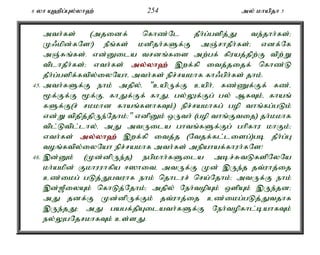 6 லா யுஹிப்புல்லாஹ் 254 அல் மாயிதா 5
அவர்கள் (அதனைக் கொண்டே தீர்ப்பளித்து வந்தார்கள்;
முஃமின்களே!) நீங்கள் மனிதர்களுக்கு அஞ்சாதீர்கள்; எனக்கே
அஞ்சுங்கள். என்னுடைய வசனங்களை அற்பக் கிரயத்திற்கு விற்று
விடாதீர்கள்; எவர்கள் அல்லாஹ் இறக்கி வைத்ததைக் கொண்டு
தீர்ப்பளிக்கவில்லையோ, அவர்கள் நிச்சயமாக காஃபிர்கள் தாம்.
45. அவர்களுக்கு நாம் அதில், "உயிருக்கு உயிர், கண்ணுக்குக் கண்,
மூக்குக்கு மூக்கு, காதுக்குக் காது, பல்லுக்குப் பல் ஆகவும், காயங்
களுக்கு(ச் சமமான காயங்களாகவும்) நிச்சயமாகப் பழி வாங்கப்படும்
என்று விதித்திருந்தோம்;" எனினும் ஒருவர் (பழி வாங்குவதை) தர்மமாக
விட்டுவிட்டால், அது அவருடைய பாவங்களுக்குப் பரிகார மாகும்;
எவர்கள் அல்லாஹ் இறக்கி வைத்த (வேதக்கட்டளைப்)படி தீர்ப்பு
வழங்கவில்லையோ நிச்சயமாக அவர்கள் அநியாயக்காரர்களே!
46. இன்னும் (முன்னிருந்த) நபிமார்களுடைய அடிச்சுவடுகளிலேயே
மர்யமின் குமாரராகிய ஈஸாவை, அவருக்கு முன் இருந்த தவ்ராத்தை
உண்மைப் படுத்துபவராக நாம் தொடரச் செய்தோம்; அவருக்கு நாம்
இன்ஜீலையும் கொடுத்தோம்; அதில் நேர்வழியும் ஒளியும் இருந்தன;
அது தனக்கு முன்னிருக்கும் தவ்ராத்தை உண்மைப்படுத்துவதாக
இருந்தது; அது பயபக்தியுடையவர்களுக்கு நேர்வழிகாட்டியாகவும்
நல்லுபதேசமாகவும் உள்ளது.